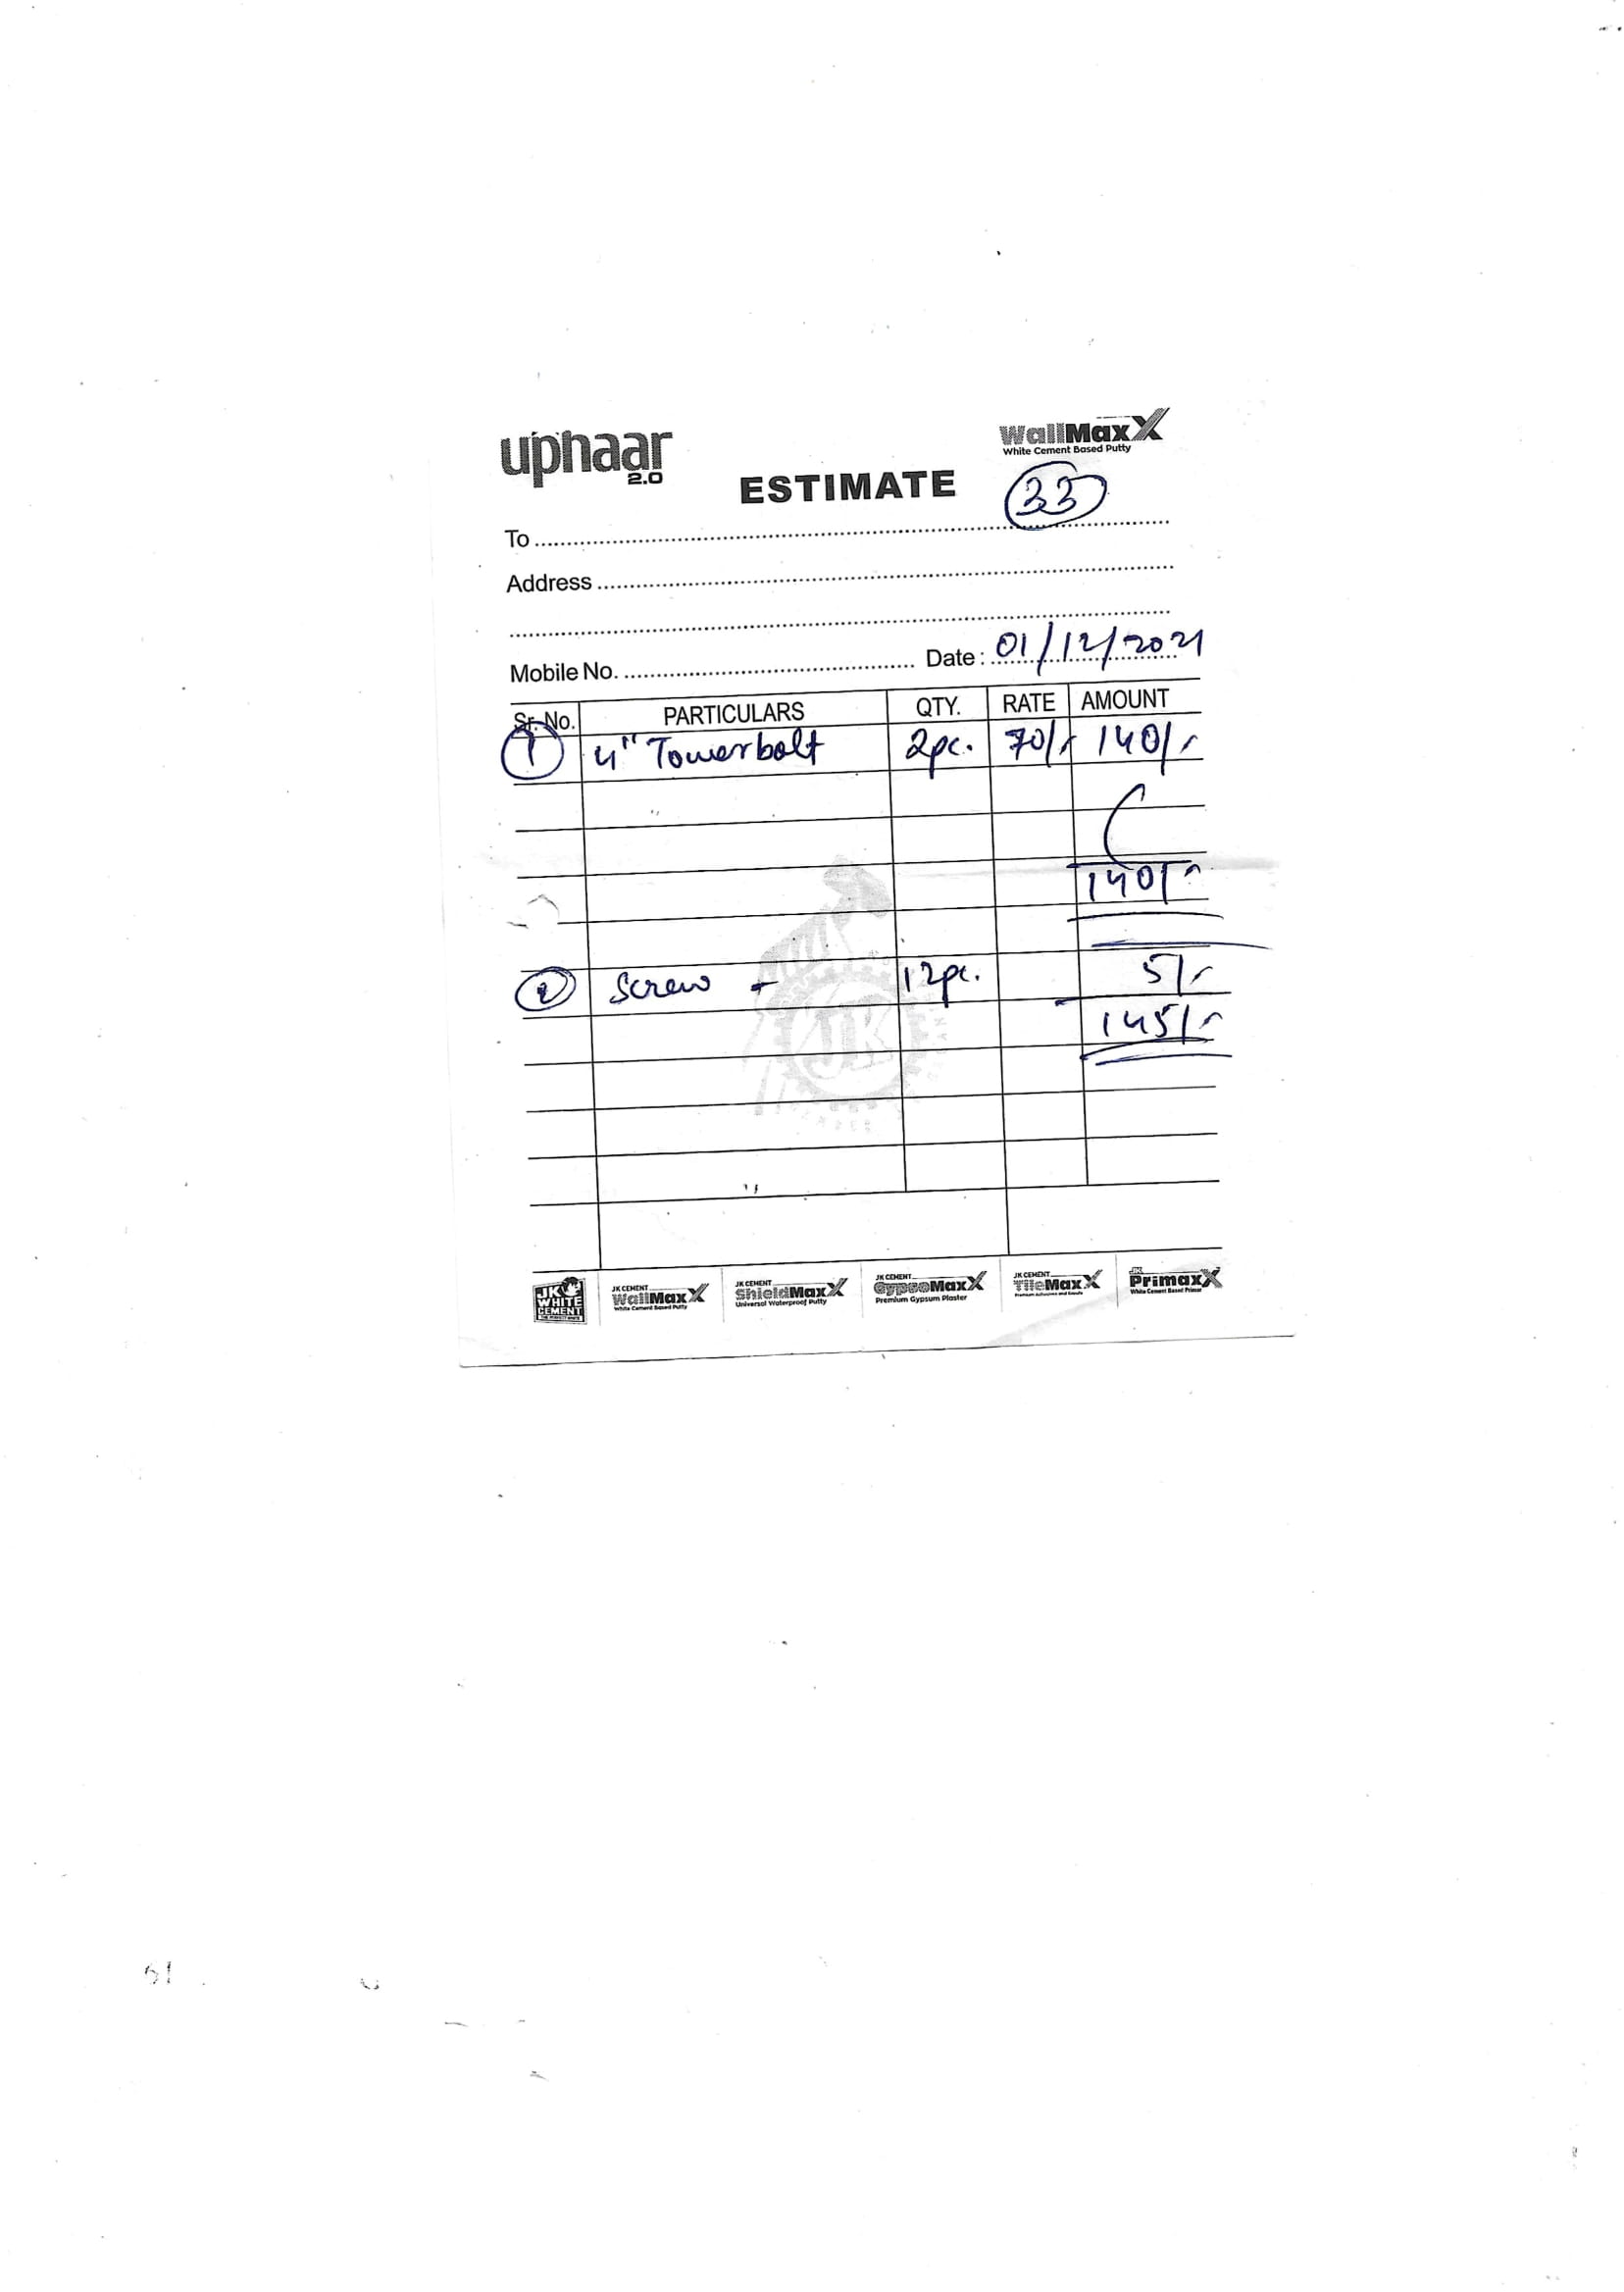 uphaar
2.0
WallMaxX
White Cement Based Putty
ESTIMATE
33
To
Address
Mobile No. Date: 01/12/2021
Sr. No. PARTICULARS QTY. RATE AMOUNT
1 4" Towerbolt 2pc. 70/- 140/-
140/-
2 Screw - 12pc. 5/-
145/-
JK
JK WHITE CEMENT
JK CEMENT WallMaxX White Cement Based Putty
JK CEMENT ShieldMaxX Universal Waterproof Putty
JK CEMENT GypsoMaxX Premium Gypsum Plaster
JK CEMENT TileMaxX
JK PrimaxX White Cement Based Primer